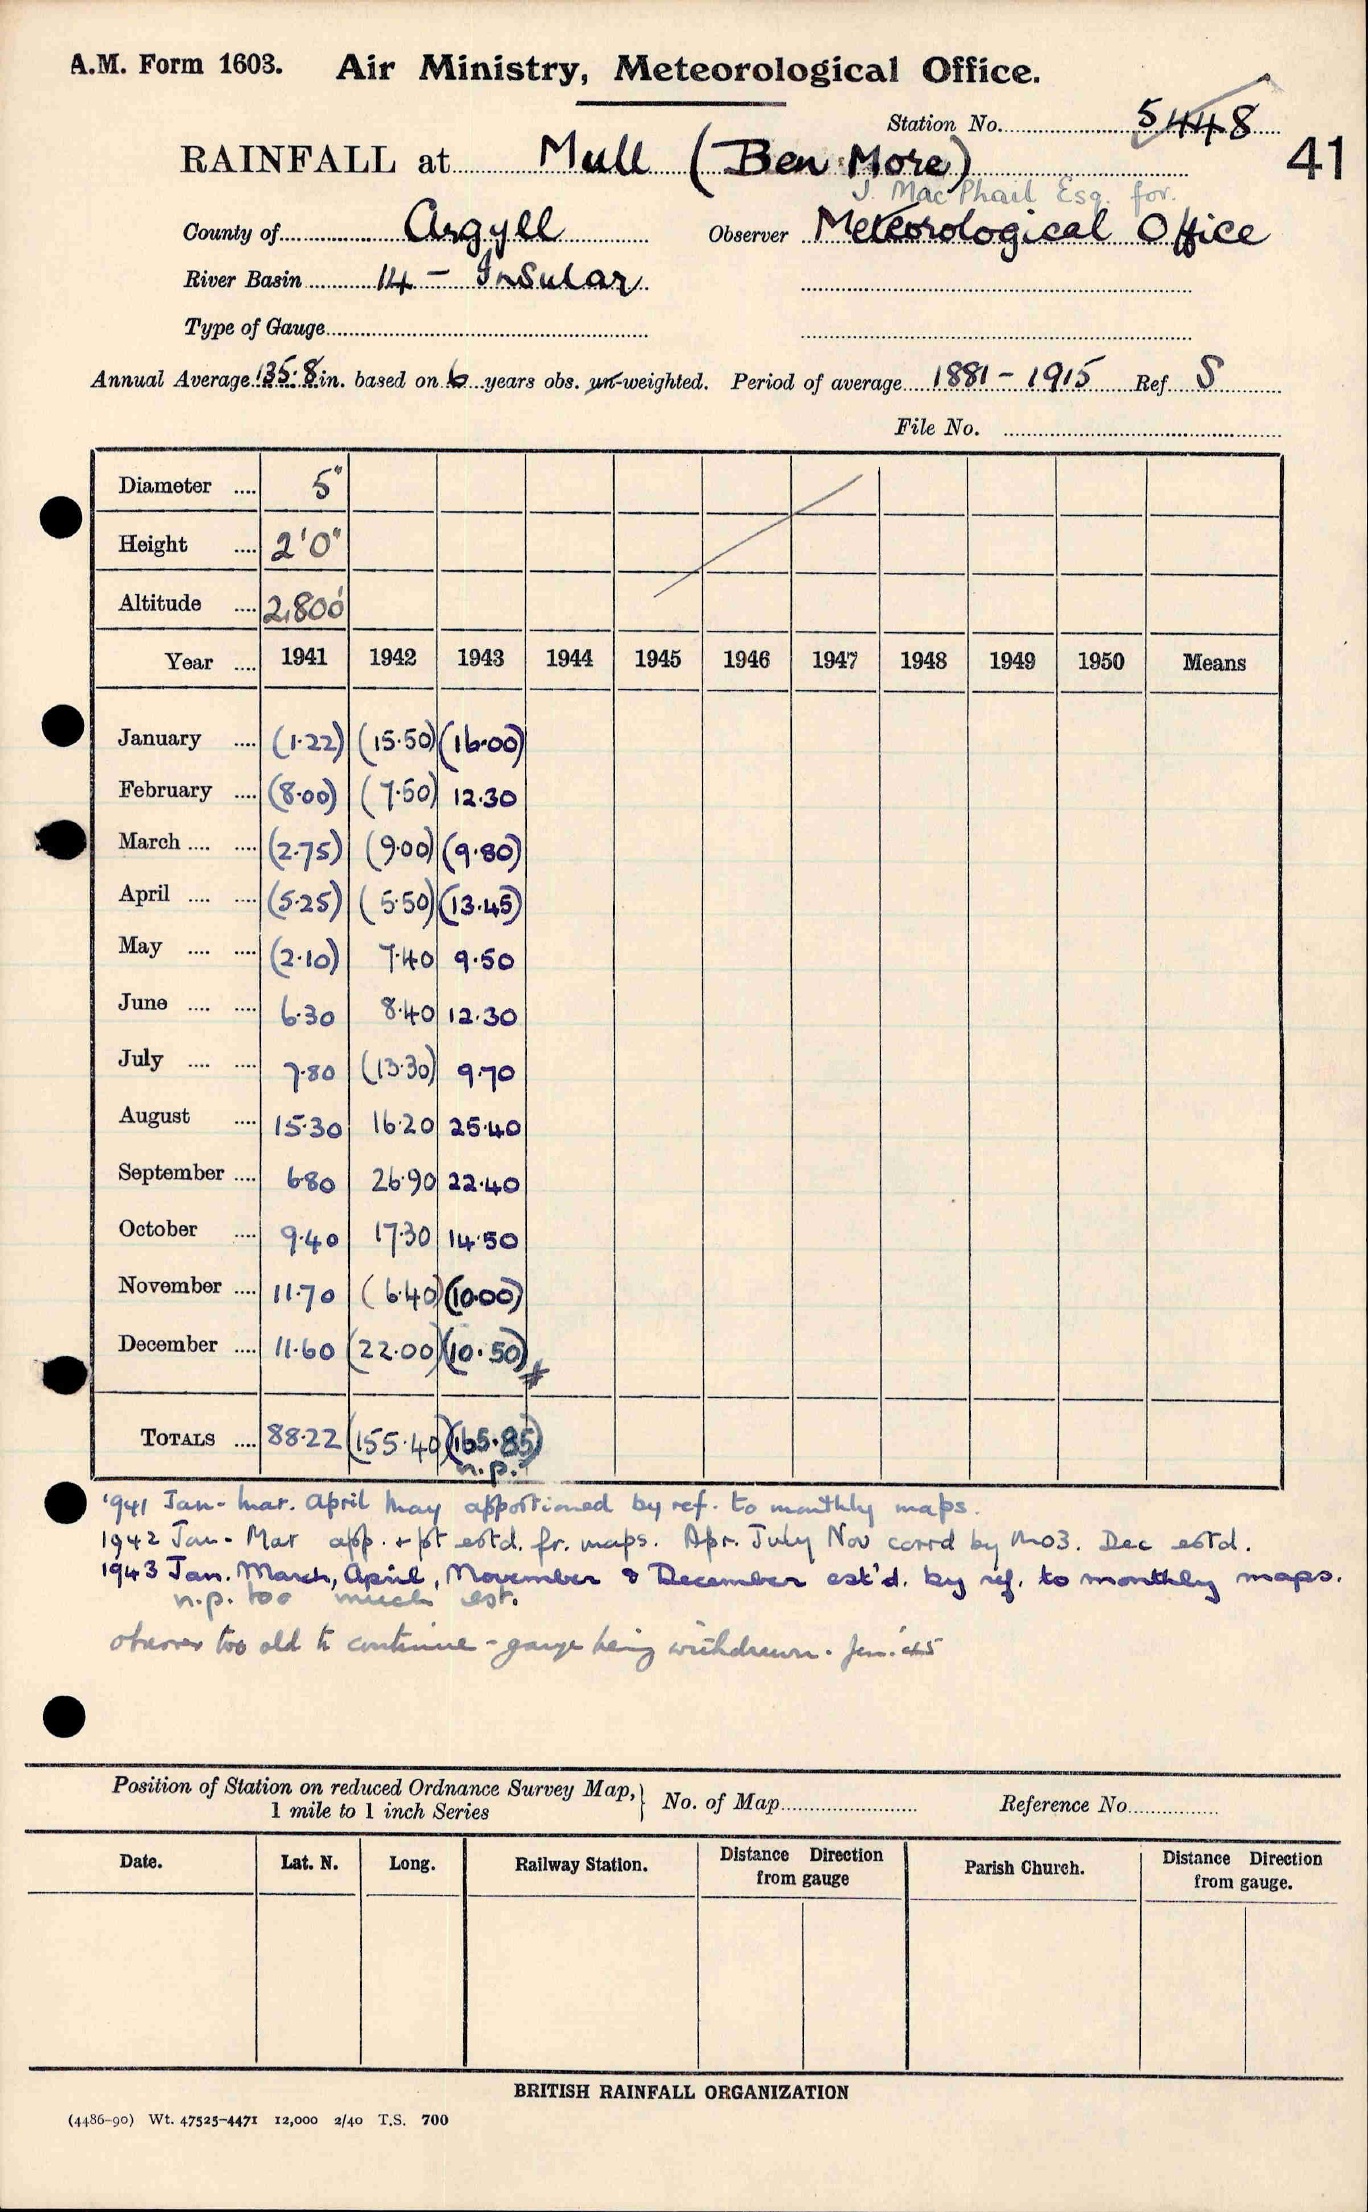 A.M. Form 1603. Air Ministry, Meteorological Office.
Station No. 5448
41
RAINFALL at Mull (Ben More)
J. MacPhail Esq. for.
County of Argyll Observer Meteorological Office
River Basin 14 - Insular
Type of Gauge
Annual Average 135.8 in. based on 6 years obs. un-weighted. Period of average 1881 - 1915 Ref S
File No.
Diameter .... 5"
Height .... 2'0"
Altitude .... 2,800'
Year .... 1941 1942 1943 1944 1945 1946 1947 1948 1949 1950 Means
January .... (1.22) (15.50) (16.00)
February .... (8.00) (7.50) 12.30
March .... .... (2.75) (9.00) (9.80)
April .... .... (5.25) (5.50) (13.45)
May .... .... (2.10) 7.40 9.50
June .... .... 6.30 8.40 12.30
July .... .... 7.80 (13.30) 9.70
August .... 15.30 16.20 25.40
September .... 6.80 26.90 22.40
October .... 9.40 17.30 14.50
November .... 11.70 (6.40) (10.00)
December .... 11.60 (22.00) (10.50)
TOTALS .... 88.22 (155.40) (165.85)
n.p.
1941 Jan - Mar. April May apportioned by ref. to monthly maps.
1942 Jan - Mar app. + pt estd. fr. maps. Apr. July Nov corrd by MO3. Dec estd.
1943 Jan. March, April, November & December est'd. by ref. to monthly maps.
n.p. too much est.
observer too old to continue - gauge being withdrawn. Jan. '45
Position of Station on reduced Ordnance Survey Map, } No. of Map Reference No
1 mile to 1 inch Series
Date. Lat. N. Long. Railway Station. Distance Direction from gauge Parish Church. Distance Direction from gauge.
BRITISH RAINFALL ORGANIZATION
(4486-90) Wt. 47525-4471 12,000 2/40 T.S. 700